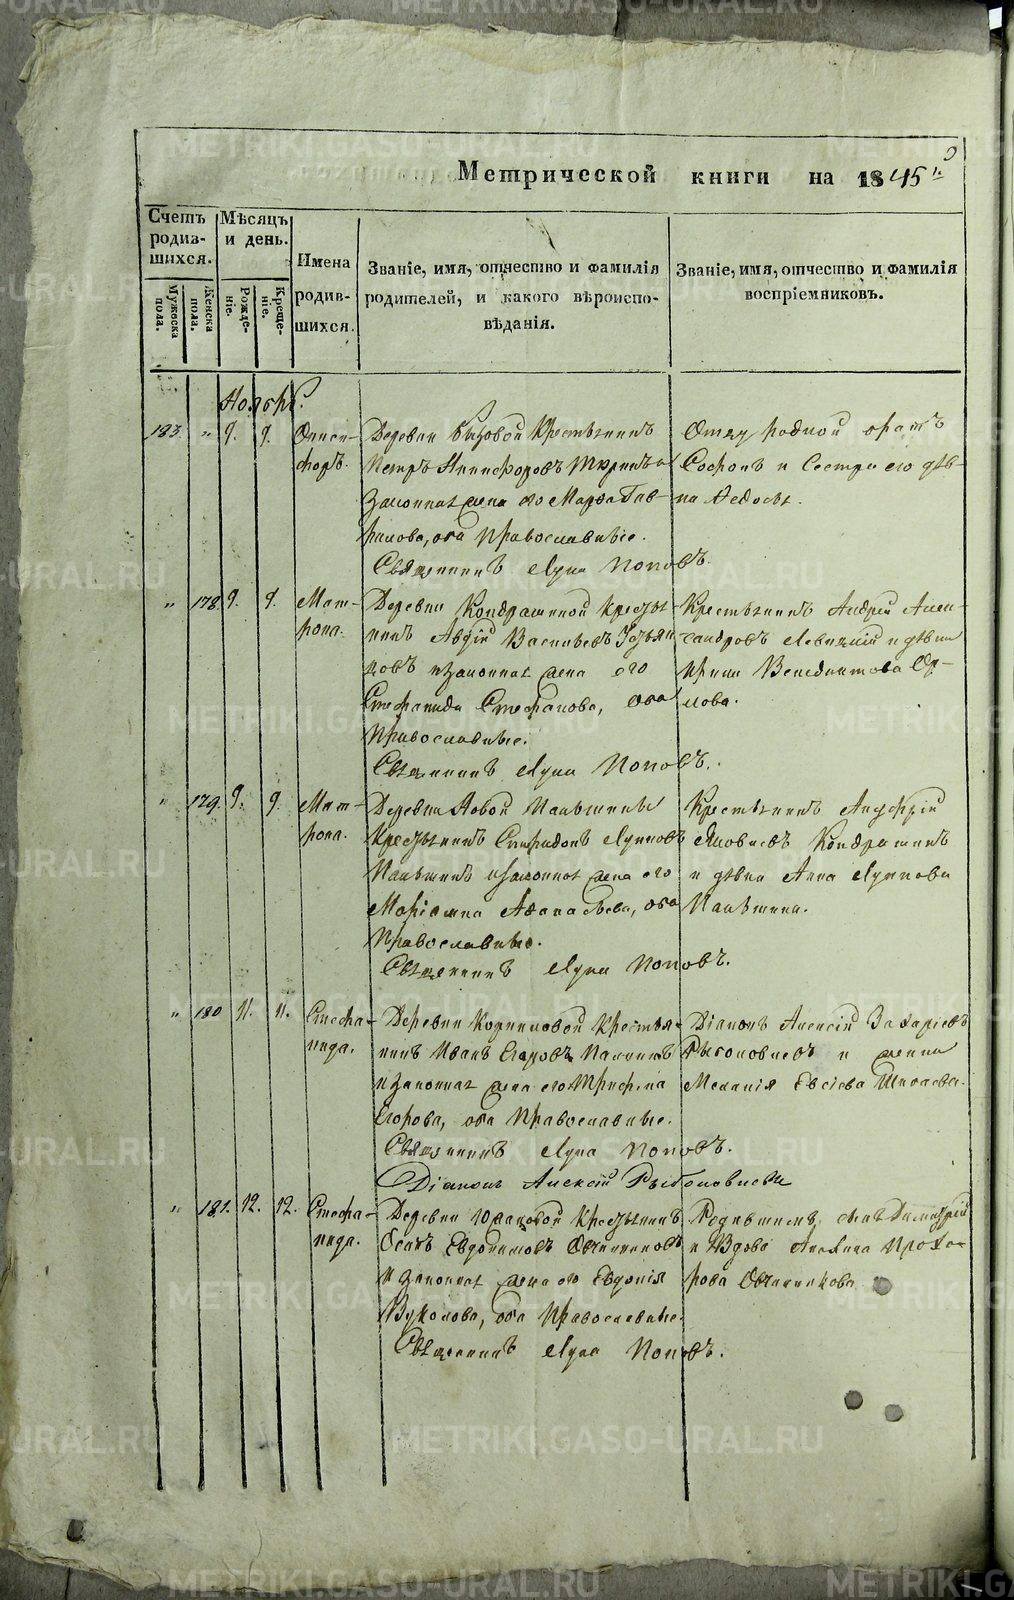 Метрической книги на 1845 г.
Счетъ родившихся.
Мужеска пола.
Женска пола.
Мѣсяцъ и день.
Рожденіе.
Крещеніе.
Имена родившихся.
Званіе, имя, отчество и фамилія
родителей, и какого вѣроиспо-
вѣданія.
Званіе, имя, отчество и фамилія
воспріемниковъ.
Ноябрь.
183. " 9. 9. Ониси-
форъ.
Деревни Крестьянинъ
Петръ Никифоровъ
законная жена его Марѳа Гав-
рилова, оба Православные.
Священникъ Лука Поповъ.
Отцу родной братъ
Софонъ и Сестра его дѣв-
ка Ѳедосья.
" 178. 9. 9. Мат-
рона.
Деревни Кондрашиной Кресть-
нинъ Авдій Васильевъ
и законная жена его
Стефанида Стефанова, оба
Православные.
Священникъ Лука Поповъ.
Крестьянинъ Андрей Алек-
сандровъ Левицкій и дѣвка
Ирина Венедиктова Ор-
лова.
" 179. 9. 9. Мат-
рона.
Деревни Новой
Крестьянинъ Спиридонъ Лукновъ
и законная жена его
Маріамна Аѳанасьева, оба
Православные.
Священникъ Лука Поповъ.
Крестьянинъ Ануфрій
Яковлевъ Кондрашинъ
и дѣвка Анна Лукнова
" 180 11. 11. Стефа-
нида.
Деревни Крестья-
нинъ Иванъ Егоровъ
и законная жена его Трифена
Егорова, оба Православные.
Священникъ Лука Поповъ.
Діаконъ Алексій Рыболовлевъ
Діаконъ Алексій Захаріевъ
Рыболовлевъ и
Меланія Евсіева
" 181. 12. 12. Стефа-
нида.
Деревни Крестьянинъ
Осипъ Евдокимовъ Овчинниковъ
и законная жена его Евдокія
Вуколова, оба Православные.
Священникъ Лука Поповъ.
Родившагося сынъ Димитрій
и Вдова Акилина Прохо-
рова Овчинникова
METRIKI.GASO-URAL.RU